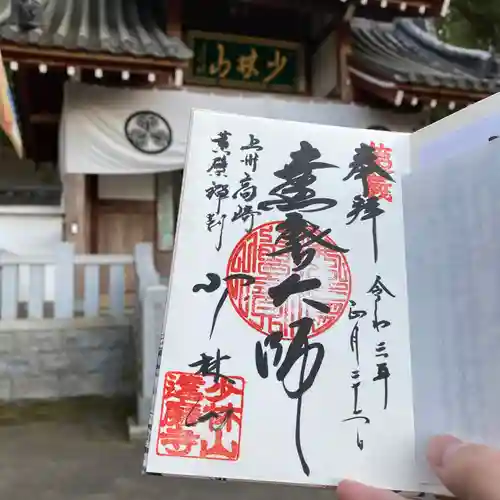 少林山
奉拝
令和三年
正月二十
達磨大師
上州高崎
黄檗禅刹
少林山
少林山
達磨寺